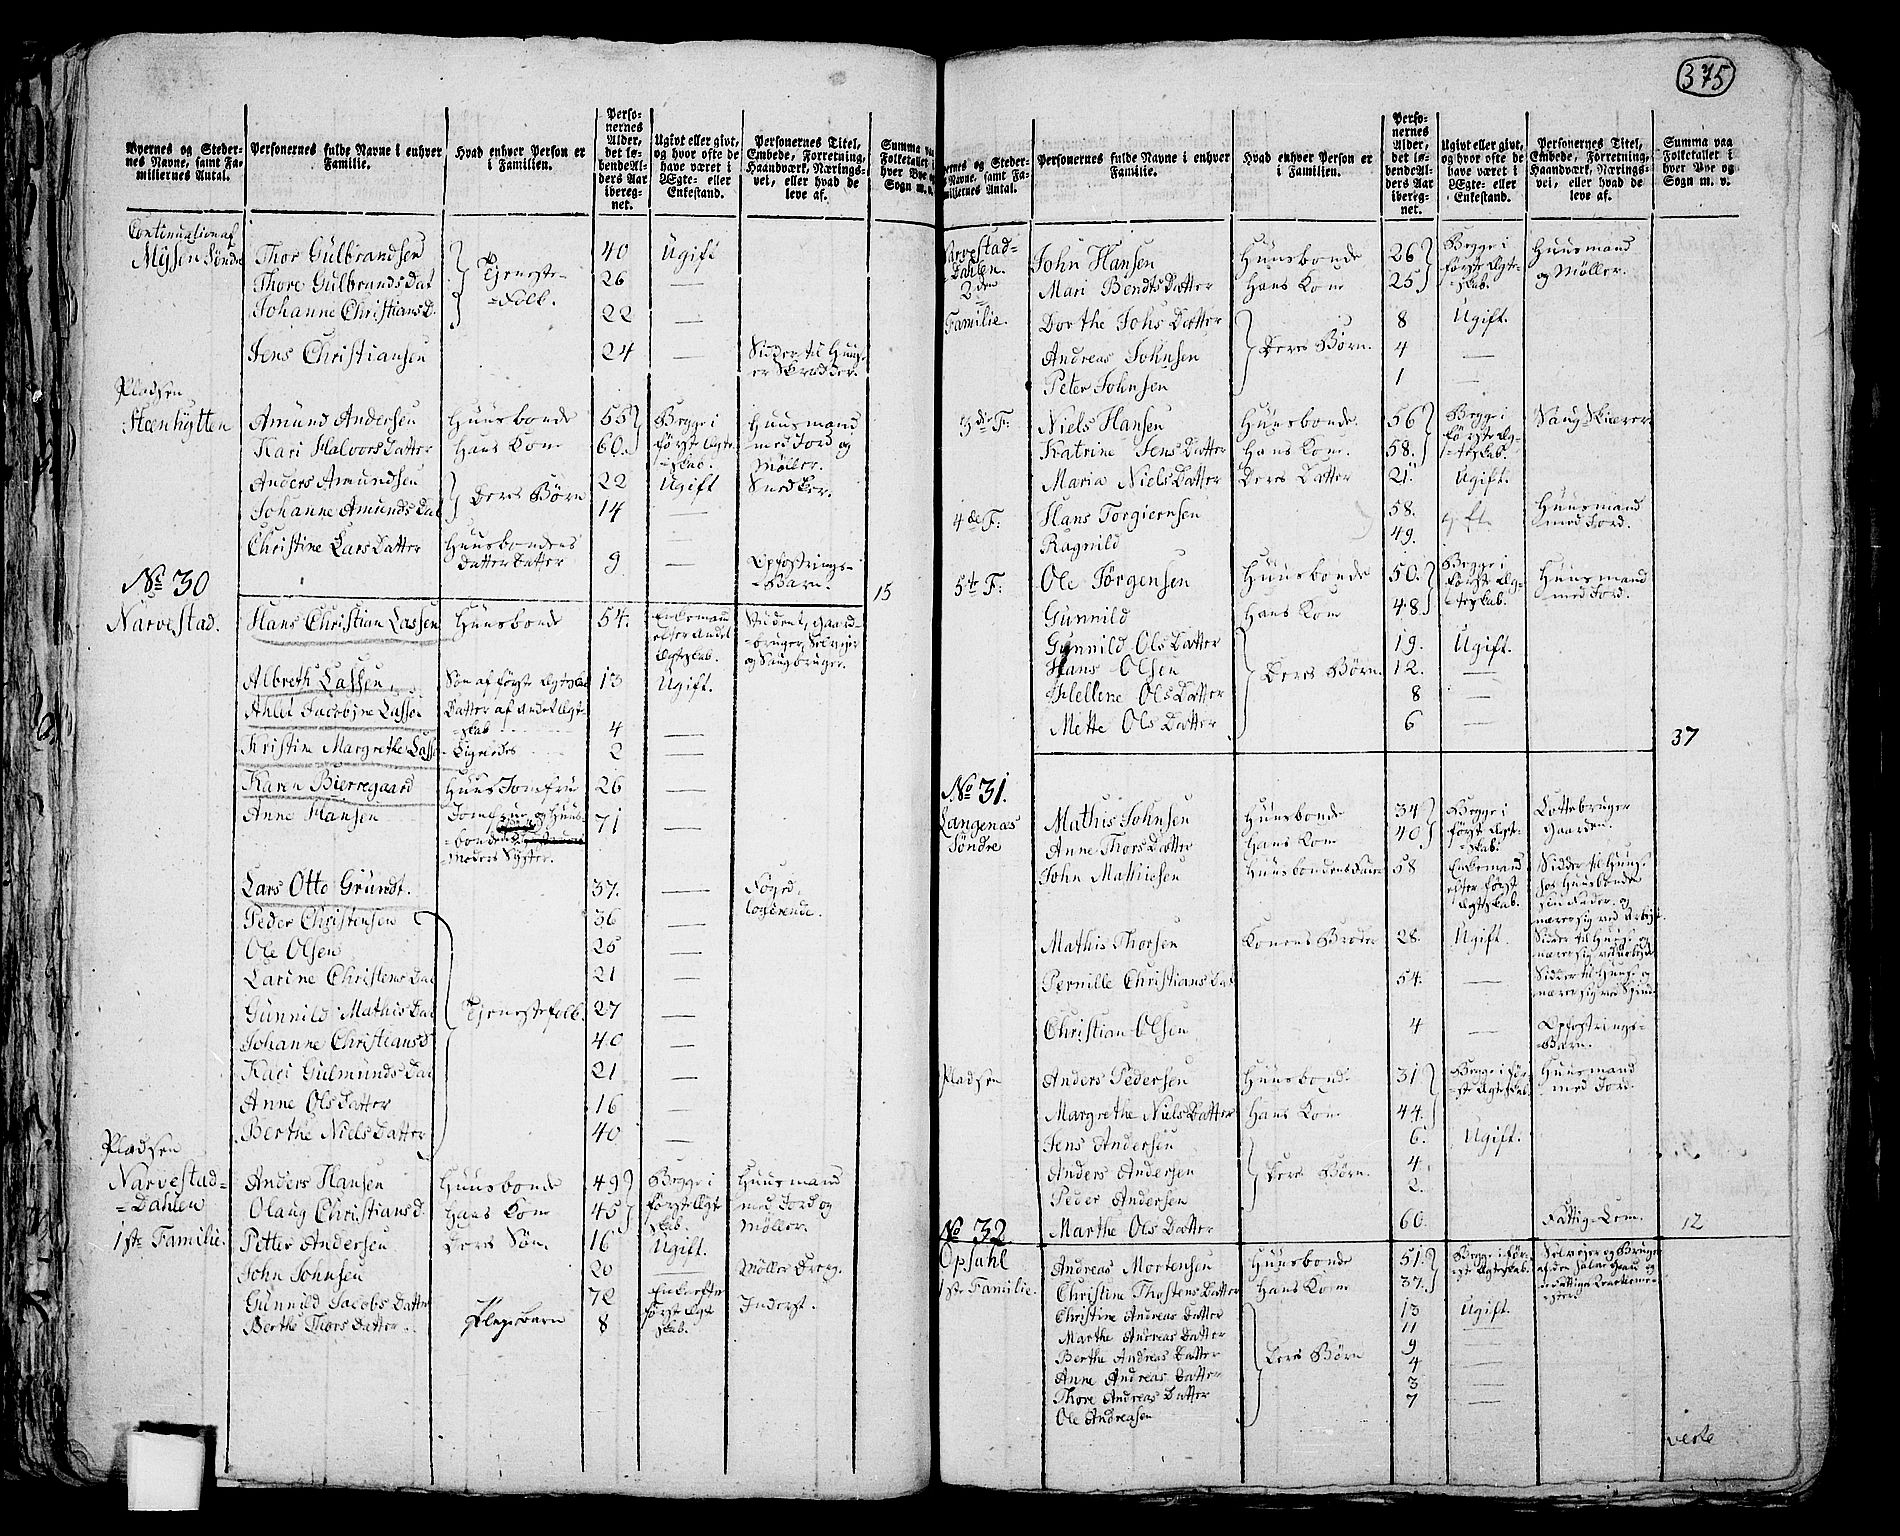 375
Byernes og Stedernes Navne, samt Familiernes Antal.
Personernes fulde Navne i enhver Familie.
Hvad enhver Person er i Familien.
Personernes Alder, det løbende Alders Aar iberegnet.
Ugivt eller givt, og hvor ofte de have været i Ægte- eller Enkestand.
Personernes Titel, Embede, Forretning, Haandværk, Næringsvei, eller hvad de leve af.
Summa paa Folketallet i hver Bye og Sogn m. v.
Continuation af
Myssen Søndre Thor Gulbrandsen 40 Ugift
Thore Gulbrands Dat Tjeneste- 26 —
Johanne Christians D. =Folk. 22 —
Jens Christiansen 24 — Sidder til Huus, er Skredder.
Pladsen
Steenhytten Amund Andersen Huusbonde 55 Begge i Huusmand
Kari Halvors Datter Hans Kone 60. første Ægte- med Jord og
=skab. Møller.
Anders Amundsen 22 Ugift Snedker.
Johanne Amunds Dat Deres Børn 14 —
Christine Lars Datter Huusbondens Datter Datter 9 — Opfostrings-=Barn.
No 30 15
Narvestad. Hans Christian Lassen Huusbonde 54. Enkemand efter andet Ægteskab. Student, Gaard=bruger, Selveier og Saugbruger.
Albreth Lassen, Søn af første Ægteskab 13 Ugift.
Ahlet Jacobine Lassen Datter af andet Ægt=skab 4 —
Kristine Margrethe Lassen Ligeledes 2 —
Karen Bierregaard Huus Jomfrue 26 —
Anne Hansen Jomfrue og Huus=bondens Moders Syster. 71 —
Lars Otto Grundt. 37. — Foged, logerende.
Peder Christensen 36 —
Ole Olsen 25 —
Larine Christens Dat 21 —
Gunnild Mathis Dat Tjenestefolk. 27 —
Johanne Christians d 40 —
Kari Gulmunds Dat 21 —
Anne Ols Datter 16 —
Berthe Niels Datter 40 —
Pladsen
Narvestad= Anders Hansen Huusbonde 49 Begge i Huusmand
=Dahlen Olaug Christians D. Hans Kone 45 første Ægt=skab. med Jord og Møller.
1ste Familie. Petter Andersen Deres Søn 16 Ugift.
John Johnsen 20 — Møller Dreng.
Gunnild Jacobs Datter 72 Enke efter første Ægt=skab. Inderst.
Berthe Thors Datter. Pleyebarn 8
Byernes og Stedernes Navne, samt Familiernes Antal.
Personernes fulde Navne i enhver Familie.
Hvad enhver Person er i Familien.
Personernes Alder, det løbende Alders Aar iberegnet.
Ugivt eller givt, og hvor ofte de have været i Ægte- eller Enkestand.
Personernes Titel, Embede, Forretning, Haandværk, Næringsvei, eller hvad de leve af.
Summa paa Folketallet i hver Bye og Sogn m. v.
Narvestad= John Hansen Huusbonde 26 Begge i Huusmand
Dahlen. 2den Mari Bendts Datter Hans Kone 25 første Ægte=skab. og Møller.
Familie. Dorthe Johs Datter 8 Ugift.
Andreas Johnsen Deres Børn. 4 —
Peter Johnsen 1 —
3die F: Niels Hansen Huusbonde. 56 Begge i Saug Skiærer
Katrine Jens Datter Hans Kone. 58. første Æg=teskab.
Maria Niels Datter Deres Datter 21. Ugift.
4de F: Hans Torgiersen 58. gift. Huusmand med Jord.
Ragnild 49.
5te F: Ole Jørgensen Huusbonde 50. Begge i Huusmand
Gunnild Hans Kone 48. første Æg=teskab. med Jord.
Gunnild Ols Datter 19. Ugift.
Hans Olsen Deres Børn. 12. —
Hellene Ols Datter 8 —
Mette Ols Datter 6 —
37
No 31.
Langenæs Mathis Johnsen Huusbonde 34 Begge i Lottebruger
Søndre Anne Thors Datter Hans Kone 40 første Ægte=skab. Gaarden.
John Mathiesen Huusbondens Fader 58 Enkemand efter først Ægteskab. Sidder til Huus hos Huusbonde sin Fader, og nærer sig ved Arbejd.
Mathis Thorsen Konens Broder 28. Ugift. Sidder til Huus og nærer sig ved Arbejd.
Pernille Christians Dat 54. — Sidder til Huus og nærer sig ved Spind.
Christian Olsen 4 — Opfostrings=Barn.
Pladsen Anders Pedersen Huusbonde. 31 Begge i før=ste Ægteskab. Huusmand med Jord.
Margrethe Niels Datter Hans Kone 44.
Jens Andersen 6. Ugift.
Anders Andersen Deres Børn. 4.
Peder Andersen 2.
Marthe Ols Datter 60. Fattig-Lem. 12
No 32
Opsahl Andreas Mortensen Huusbonde 51. Begge i før=ste Ægteskab. Selveyer og Bruger af den halve Gaard og
1ste Familie. Christine Thostens Datter Hans Kone 37.
Christine Andreas Datter 13 Ugift.
Marthe Andreas Datter 11 —
Berthe Andreas Datter Deres Børn 9 —
Anne Andreas Datter 4 —
Thore Andreas Datter 3 —
Ole Andreasen 7 —
verte